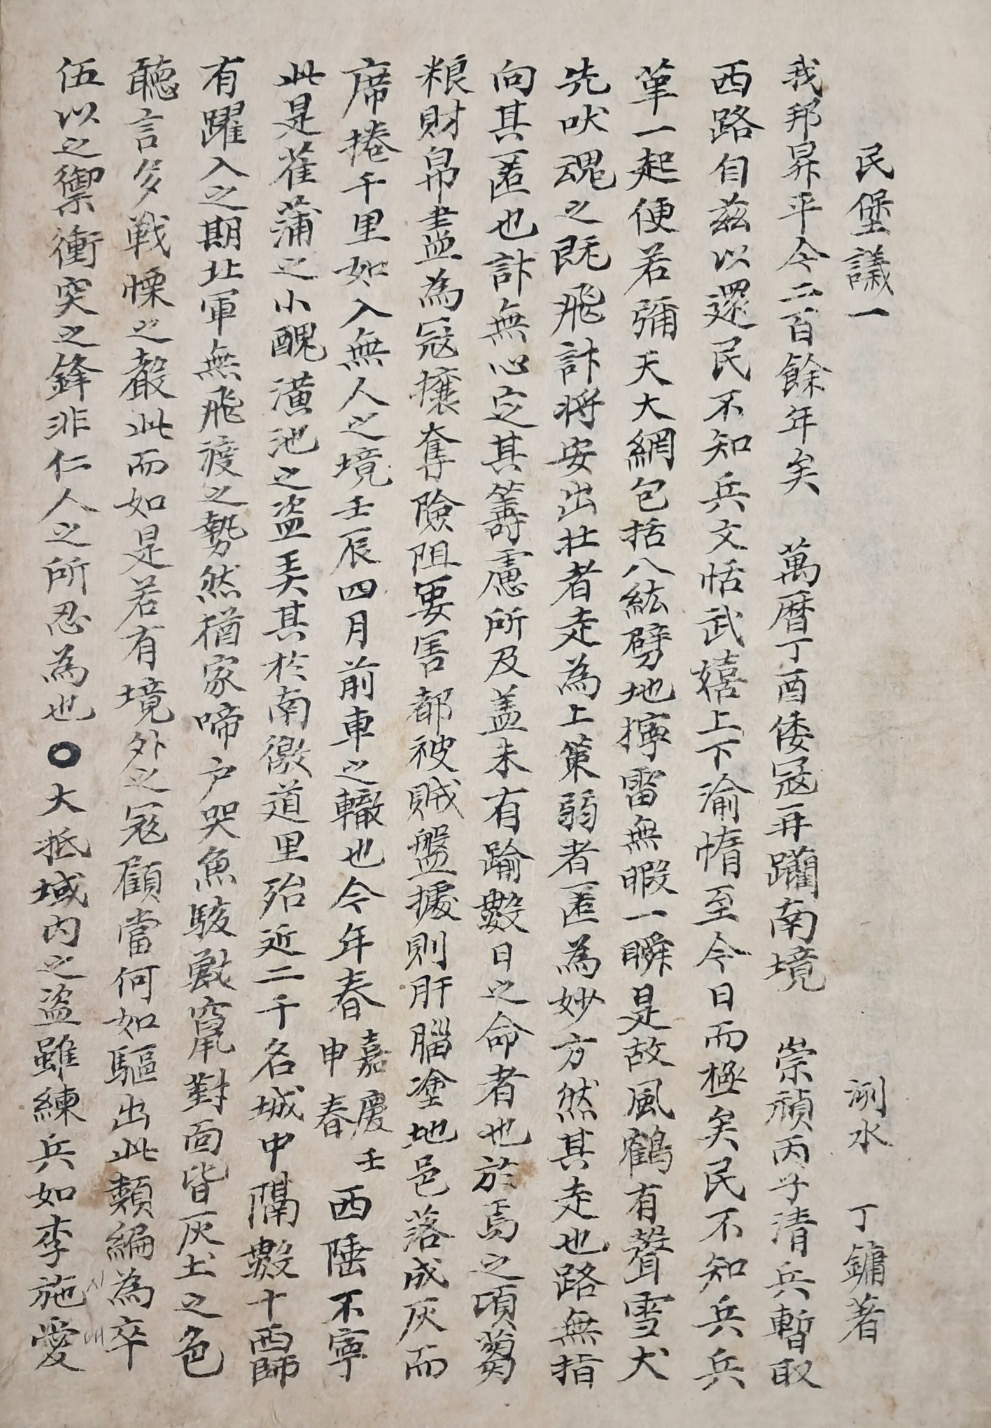 民堡議一 洌水 丁鏞著
我邦昇平今二百餘年矣 萬曆丁酉倭冦再躪南境 崇禎丙子清兵暫取
西路自茲以還民不知兵文恬武嬉上下渝惰至今日而極矣民不知兵兵
革一起便若彌天大網包括八紘劈地擰雷無暇一瞬是故風鶴有聲雪犬
先吠魂之既飛計將安出壯者走為上策弱者匿為妙方然其走也路無指
向其匿也計無心定其籌慮所及盖未有踰數日之命者也於焉之頃蒭
粮財帛盡為冦攘奪險阻要害都被賊盤據則肝腦塗地邑落成灰而
席捲千里如入無人之境壬辰四月前車之轍也今年春嘉慶壬申春西陲不寧
此是萑蒲之小醜潢池之盜弄其於南徼道里殆近二千名城中隔數十西師
有躍入之期北軍無飛渡之勢然猶家啼户哭魚駭獸竄對面皆灰土之色
聽言多戰慄之聲此而如是若有境外之冦顧當何如驅出此類編為卒
伍以之禦衝突之鋒非仁人之所忍為也○大抵域内之盜雖練兵如李施愛